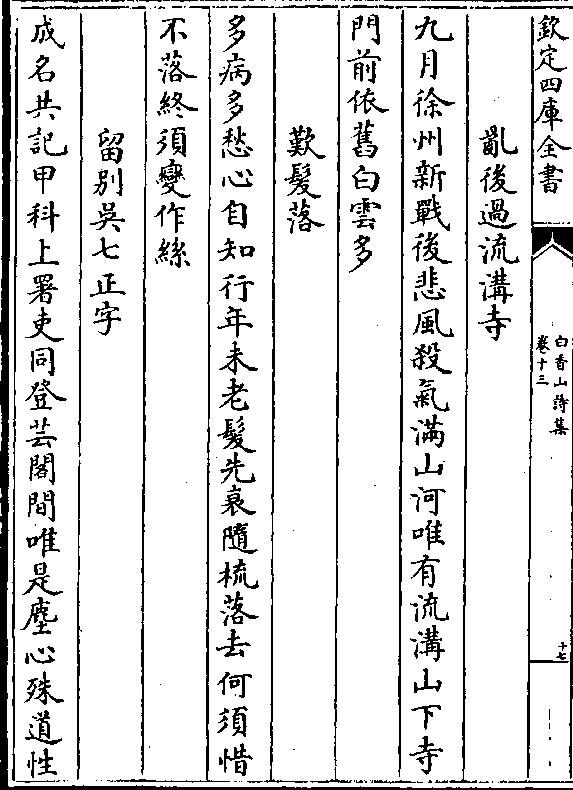 欽定四庫全書
白香山詩集
卷十三
十七
亂後過流溝寺
九月徐州新戰後悲風殺氣滿山河唯有流溝山下寺
門前依舊白雲多
歎髮落
多病多愁心自知行年未老髮先衰隨梳落去何須惜
不落終須變作絲
留別吳七正字
成名共記甲科上署吏同登芸閣間唯是塵心殊道性